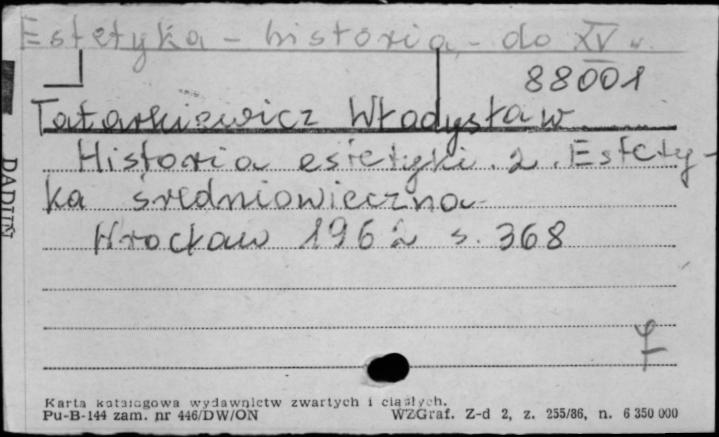 Estetyka - historia - do XV w.
88001
Tatarkiewicz Władysław
Historia estetyki. 2. Estety-
ka średniowieczna
Wrocław 1962 s. 368
Karta katalogowa wydawnictw zwartych i ciągłych.
Pu-B-144 zam. nr 446/DW/ON
WZGraf. Z-d 2, z. 255/86, n. 6 350 000